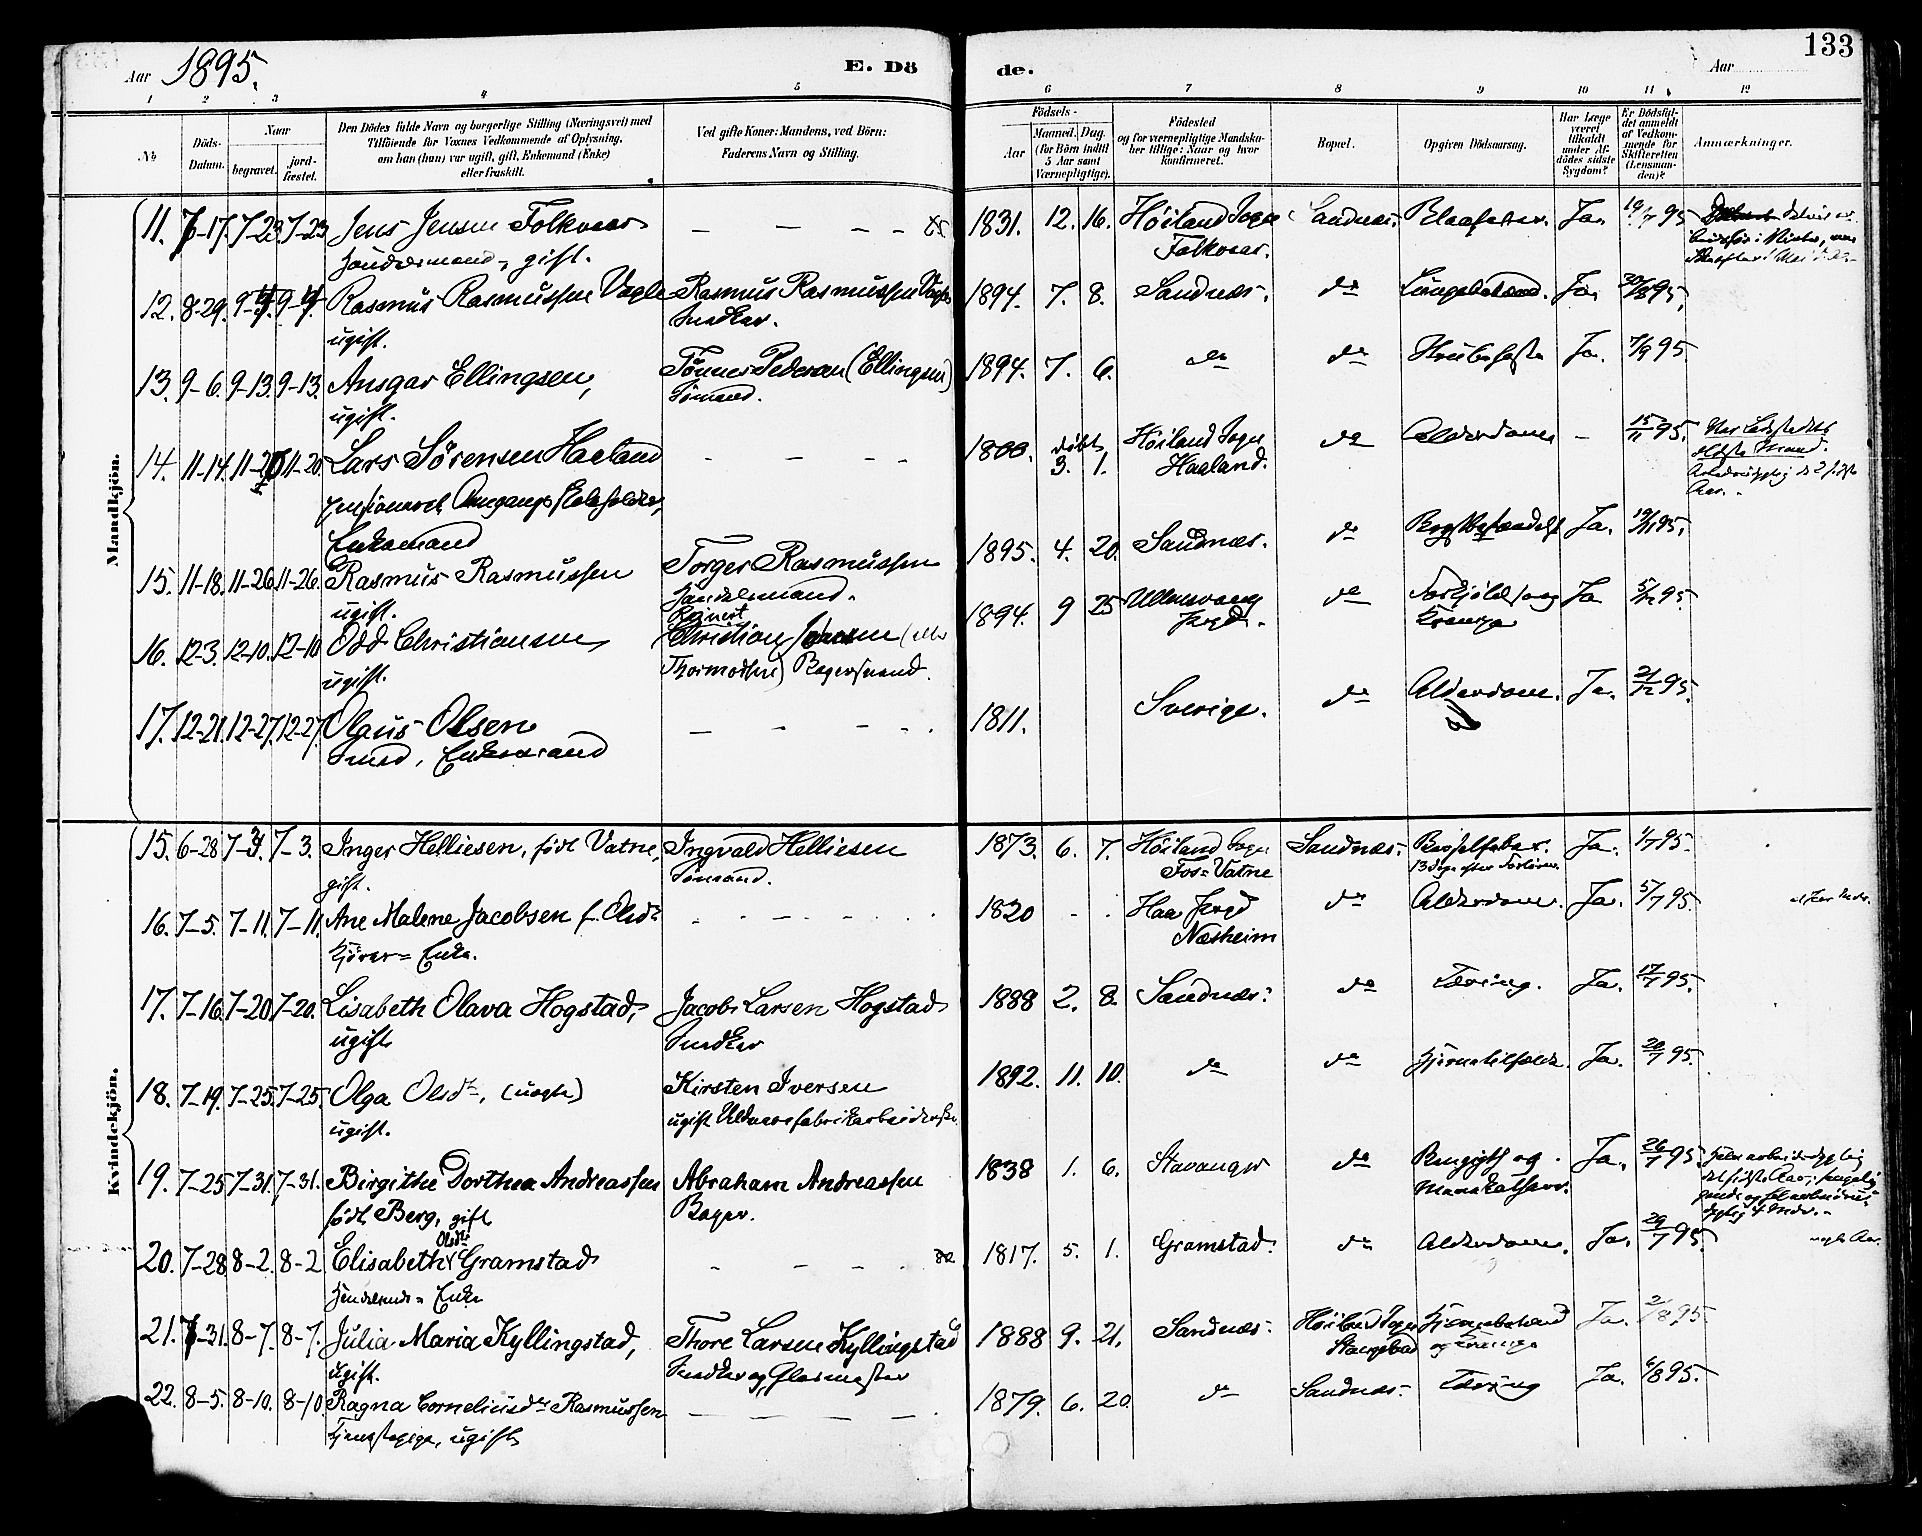 133
Aar 1895.
E. Dö
de.
Aar
1 2 3 4 5 6 7 8 9 10 11 12
No
Döds-Datum.
Naar
begravet.
jord-fæstet.
Den Dödes fulde Navn og borgerlige Stilling (Næringsvei) med
Tilföiende for Voxnes Vedkommende af Oplysning,
om han (hun) var ugift, gift, Enkemand (Enke)
eller fraskilt.
Ved gifte Koner: Mandens, ved Börn:
Faderens Navn og Stilling.
Födsels-
Aar
Maaned. Dag.
(for Börn indtil
5 Aar samt
Værnepligtige).
Födested
og for værnepligtige Mandska-
ber tillige: Naar og hvor
konfirmeret.
Bopæl.
Opgiven Dödsaarsag.
Har Læge
været
tilkaldt
under Af-
dödes sidste
Sygdom?
Er Dödsfal-
det anmeldt
af Vedkom-
mende for
Skifteretten
(Lensman-
den)?
Anmærkninger.
Mandkjön.
11. 7-17. 7-23. 7-23 Jens Jensen Folkvoar - - - - 1831. 12. 16. Höiland Sogn Sandnæs. Ja. 19/7 95
Handelsmand, gift. Folkvoar.
12. 8-29. 9-4. 9-4. Rasmus Rasmussen Vagle Rasmus Rasmussen Vagle 1894. 7. 8. Sandnæs. do Lungebetænd. Ja. 30/8 95.
ugift. Snedker.
13. 9-6. 9-13. 9-13. Ansgar Ellingsen, Tönnes Pedersen (Ellingsen) 1894. 7. 6. do do Ja. 7/9 95
ugift. Sömand.
14. 11-14. 11-20 11-20. Lars Sörensen Haaland - - - - 1800. döbt 3. 1. Höiland Sogn do Alderdom - 15/11 95.
pensioneret Omgangsskoleholder, Haaland. Mand.
Enkemand Aar.
15. 11-18. 11-26. 11-26. Rasmus Rasmussen Torger Rasmussen 1895. 4. 20. Sandnæs. do Ja. 19/11 95.
ugift. Handelsmand.
16. 12-3. 12-10. 12-10 Odd Christiansen Christian (eller 1894. 9 25 Ullensvang do og Ja 5/12 95.
ugift. Thormodsen) Bagersvend. Prgd. Krampe
17. 12-21. 12-27. 12-27. Olaus Olsen - - - - 1811. Sverige. do Alderdom. Ja. 21/12 95.
Smed, Enkemand
Kvindekjön.
15. 6-28 7-3. 7-3. Inger Helliesen, födt Vatne, Ingvald Helliesen 1873. 6. 7. Höiland Sogn Sandnæs. Barselfeber. Ja. 1/7 95.
gift. Sömand. Fos-Vatne 13 Dage efter
16. 7-5. 7-11. 7-11. Ane Malene Jacobsen f. Olsdr - - - - 1820 - - Haa Prgd do Alderdom. Ja. 5/7 95.
Kjörer-Enke. Næsheim
17. 7-16. 7-20. 7-20. Lisabeth Olava Hogstad, Jacob Larsen Hogstad 1888 2. 8. Sandnæs. do Tæring. Ja. 17/7 95.
ugift Snedker
18. 7-19. 7-25. 7-25. Olga Olsdr, (uægte) Kirsten Iversen 1892. 11. 10. do do Hjernetilfælde. Ja. 20/7 95.
ugift. ugift Uldvarefabrikarbeiderske
19. 7-25 7-31. 7-31. Birgithe Dorthea Andreassen Abraham Andreassen 1838 1. 6. Stavanger do og Ja. 26/7 95
födt Berg, gift Bager.
20. 7-28 8-2. 8-2 Elisabeth Olsdr Gramstad - - - - 1817. 5. 1. Gramstad. do Alderdom. Ja. 29/7 95.
Enke
21. 7-31. 8-7. 8-7. Julia Maria Kyllingstad, Thore Larsen Kyllingstad 1888 9. 21. Sandnæs. Höiland Sogn Ja. 2/8 95
ugift. Snedker og Glasmester og Krampe
22. 8-5. 8-10. 8-10. Ragna Corneliusdr Rasmussen - - - - 1879. 6. 20. do Sandnæs. Tæring Ja. 6/8 95.
Tjenestepige, ugift